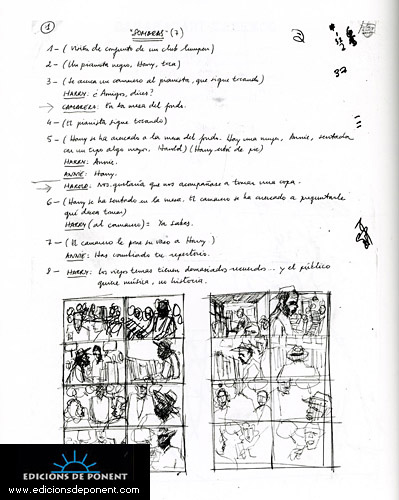 1
"SOMBRAS" (7)
1 - (Vista de conjunto de un club lumpen)
2 - (Un pianista negro, Harry, toca)
3 - (Se acerca un camarero al pianista, que sigue tocando)
HARRY: ¿Amigos, dices?
CAMARERA: En la mesa del fondo.
4 - (El pianista sigue tocando)
5 - (Harry se ha acercado a la mesa del fondo. Hay una mujer, Annie, sentada
con un tipo algo mayor. Harold) (Harry está de pie)
HARRY: Annie.
ANNIE: Harry.
HAROLD: Nos gustaría que nos acompañase a tomar una copa.
6 - (Harry se ha sentado en la mesa. El camarero se ha acercado a preguntarle
qué desea tomar)
HARRY (al camarero) = Ya sabes.
7 - (El camarero le pone su vaso a Harry)
ANNIE: Has cambiado tu repertorio.
8 - HARRY: Los viejos temas tienen demasiados recuerdos... y el público
quiere música, no historia.
EDICIONS DE PONENT
www.edicionsdeponent.com